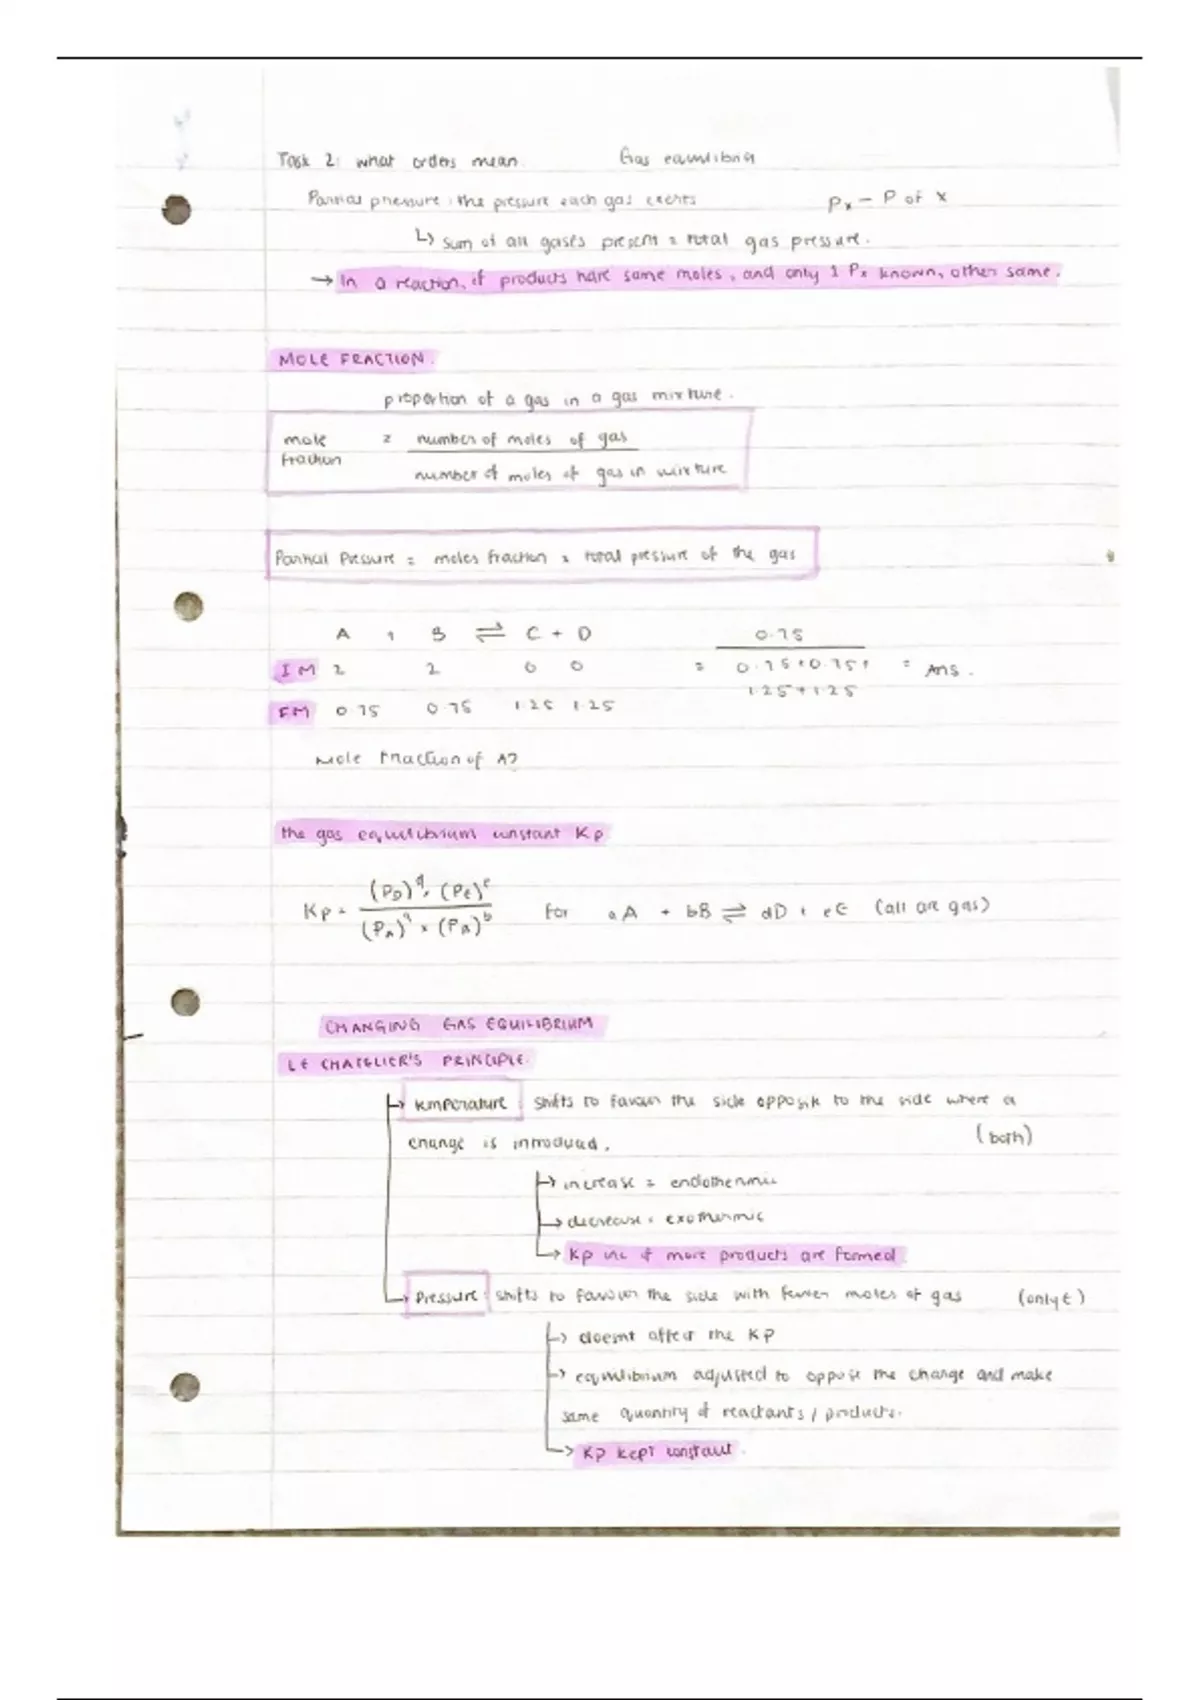 Task 2: what orders mean. Gas equilibria
Partial pressure: the pressure each gas exerts Px - P of x
↳ sum of all gases present = total gas pressure.
→ In a reaction, if products have same moles, and only 1 Px known, other same.
MOLE FRACTION.
proportion of a gas in a gas mixture.
mole fraction = number of moles of gas
number of moles of gas in mixture
Partial Pressure = moles fraction x total pressure of the gas
A + B ⇌ C + D 0.75
IM 2 2 0 0 = 0.75+0.75+ = Ans.
1.25+1.25
EM 0.75 0.75 1.25 1.25
Mole fraction of A?
the gas equilibrium constant Kp
Kp = (PD)d × (PE)e
(PA)a × (PA)b
for aA + bB ⇌ dD + eE (all are gas)
CHANGING GAS EQUILIBRIUM
LE CHATELIER'S PRINCIPLE.
→ temperature: shifts to favour the side opposite to the side where a
change is introduced. (both)
→ increase = endothermic
→ decrease = exothermic
→ Kp inc if more products are formed.
→ Pressure: shifts to favour the side with fewer moles of gas (only E)
→ doesnt affect the KP
→ equilibrium adjusted to oppose the change and make
same quantity of reactants / products.
→ KP kept constant.